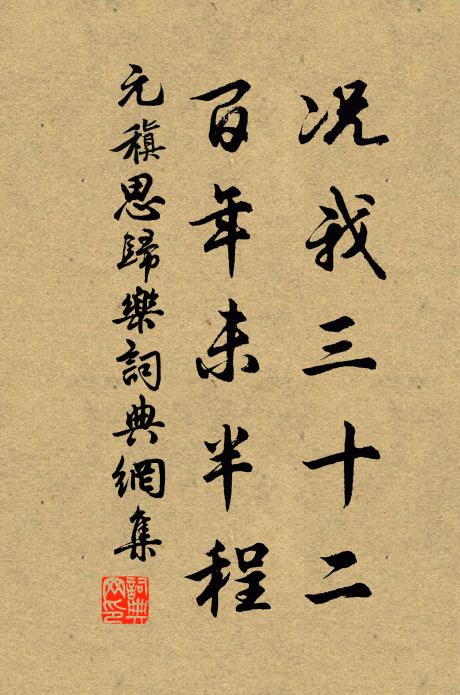 况我三十二
百年未半程
元稹思歸樂詞典網集
詞典網印